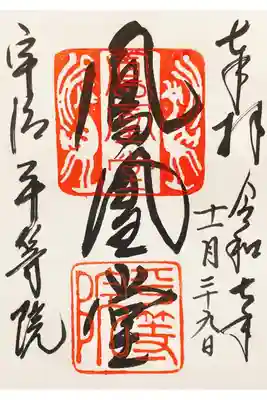 奉拝
令和七年
十一月二十九日
鳳凰堂
平等院
宇治 平等院